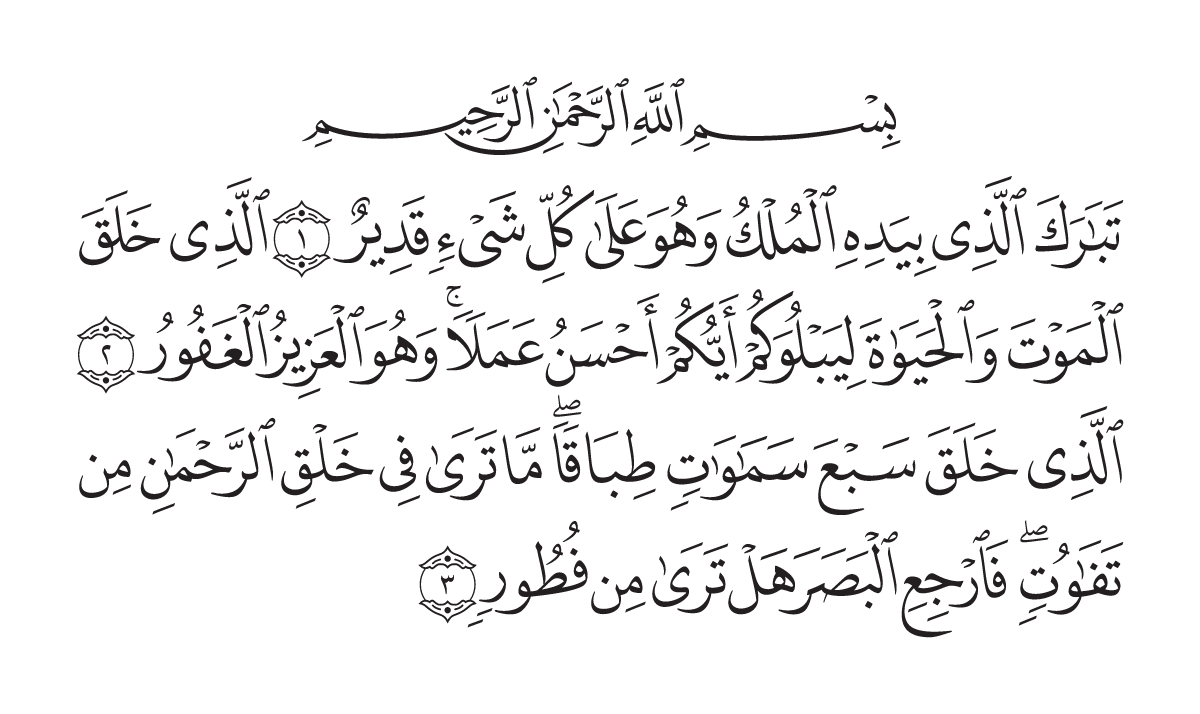 بِسْمِ ٱللَّهِ ٱلرَّحْمَٰنِ ٱلرَّحِيمِ
تَبَٰرَكَ ٱلَّذِى بِيَدِهِ ٱلْمُلْكُ وَهُوَ عَلَىٰ كُلِّ شَىْءٍ قَدِيرٌ ١ ٱلَّذِى خَلَقَ
ٱلْمَوْتَ وَٱلْحَيَوٰةَ لِيَبْلُوَكُمْ أَيُّكُمْ أَحْسَنُ عَمَلًا ۚ وَهُوَ ٱلْعَزِيزُ ٱلْغَفُورُ ٢
ٱلَّذِى خَلَقَ سَبْعَ سَمَٰوَٰتٍ طِبَاقًا ۖ مَّا تَرَىٰ فِى خَلْقِ ٱلرَّحْمَٰنِ مِن
تَفَٰوُتٍ ۖ فَٱرْجِعِ ٱلْبَصَرَ هَلْ تَرَىٰ مِن فُطُورٍ ٣